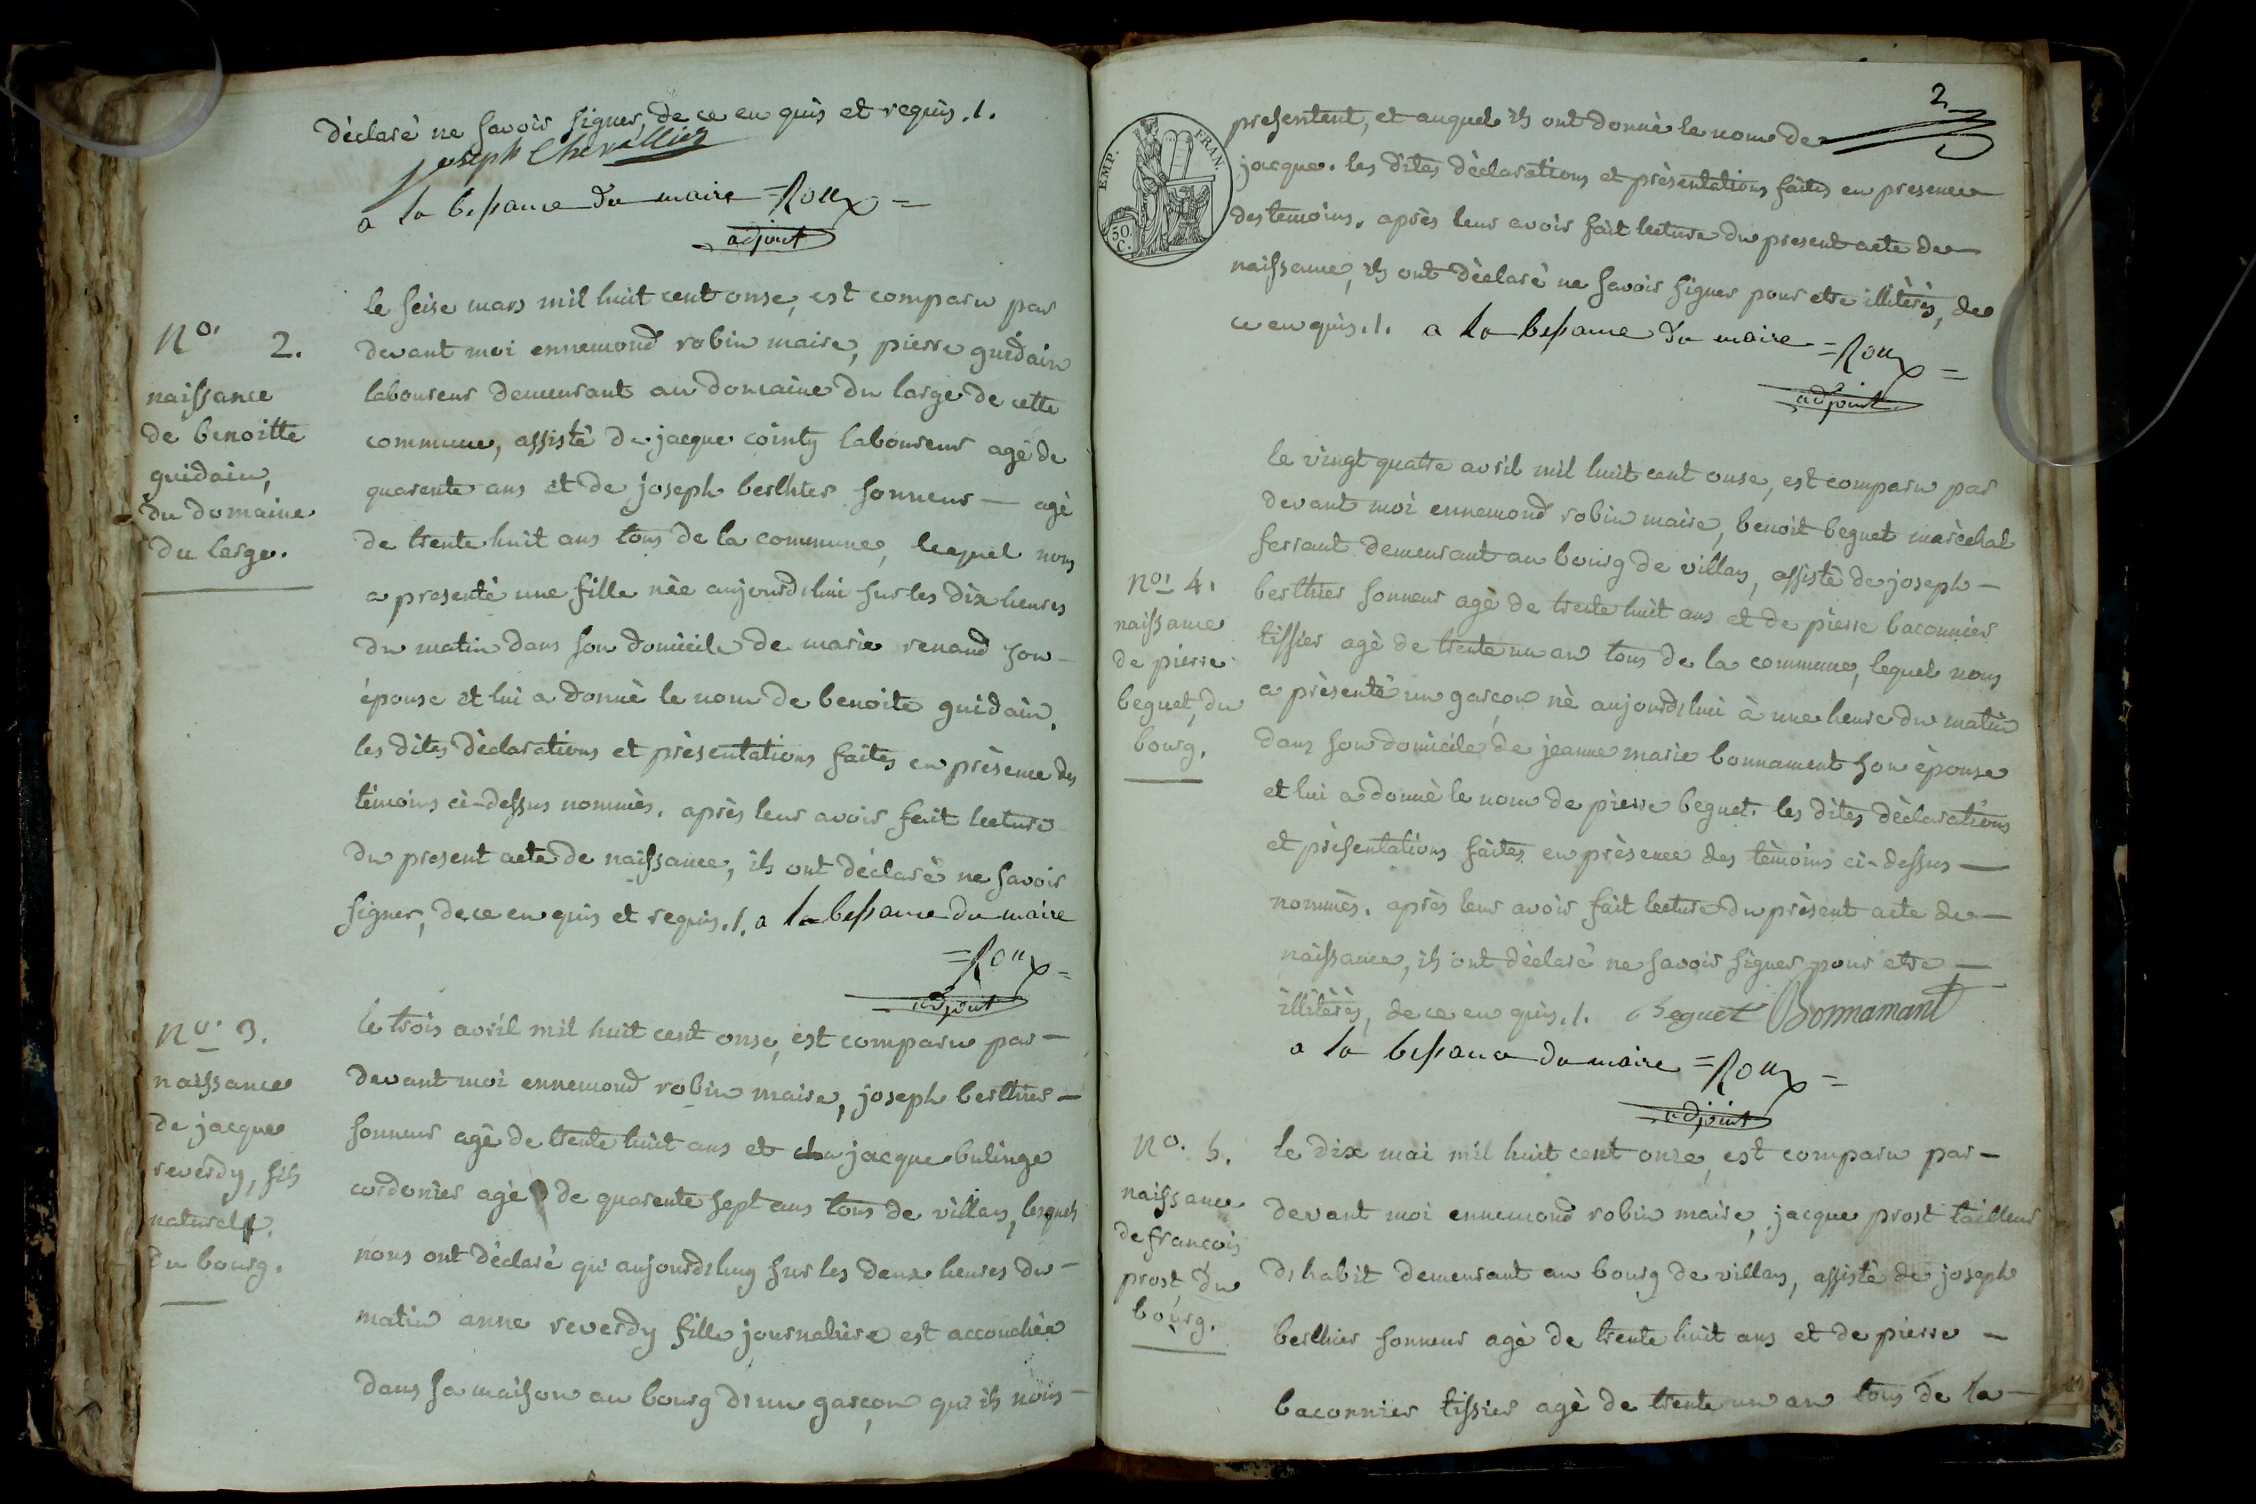 dèclaré ne savoir signer, de ce en quis et requis. /.
joseph Chevallier
a la bessance du maire = Roux =
adjoint
No. 2.
naissance
de benoitte
guidain,
du domaine
du large.
le seise mars mil huit cent onse, est comparu par
devant moi ennemond robin maire, pierre guidain
laboureur demeurant au domaine du large de cette
commune, assisté de jacque cointy laboureur agé de
quarente ans et de joseph berthier sonneur — agé
de trente huit ans tous de la commune, lequel nous
a presenté une fille née aujourd'hui sur les dix heures
du matin dans son domicile de marie renaud son —
épouse et lui a donnè le nom de benoite guidain.
les dites dèclarations et prèsentations faites en prèsence des
tèmoins ci-dessus nommès. après leur avoir fait lecture
du present acte de naissance, ils ont dèclaré ne savoir
signer, de ce en quis et requis. /. a la bessance du maire
= Roux =
adjoint
No. 3.
naissance
de jacque
reverdy, fils
naturel
du bourg.
le trois avril mil huit cent onse, est comparu par —
devant moi ennemond robin maire, joseph berthier —
sonneur agè de trente huit ans et jacque bulinge
cordonier agè de quarente sept ans tous de villars, lesquels
nous ont dèclaré qu'aujourd'huy sur les deux heures du —
matin anne reverdy fille journalière est accouchée
dans sa maison au bourg d'un garçon qu'ils nous —
2
EMP. FRAN.
50. C.
presentent, et auquel ils ont donnè le nom de
jacque. les dites dèclarations et prèsentations faites en presence
des temoins. après leur avoir fait lecture du present acte de —
naissance, ils ont dèclarè ne savoir signer pour etre illitèrès, de
ce en quis. /. a la bessance du maire = Roux =
adjoint
le vingt quatre avril mil huit cent onse, est comparu par
devant moi ennemond robin maire, benoit beguet marèchal
ferrant demeurant au bourg de villars, assistè de joseph —
berthier sonneur agè de trente huit ans et de pierre baconnier
tissier agè de trente un an tous de la commune, lequel nous
a prèsentè un garçon nè aujourd'hui à une heure du matin
dans son domicile de jeanne marie bonnament son èpouse
et lui a donnè le nom de pierre beguet. les dites dèclarations
et prèsentations faites en prèsence des tèmoins ci-dessus —
nommès. après leur avoir fait lecture du prèsent acte de —
naissance, ils ont dèclaré ne savoir signer pour etre —
illitèrès, de ce en quis. /. Beguet Bonnamant
a la bessance du maire = Roux =
adjoint
No. 4.
naissance
de pierre
beguet, du
bourg.
No. 5.
naissance
de francois
prost, du
bourg.
le dix mai mil huit cent onze, est comparu par —
devant moi ennemond robin maire, jacque prost tailleur
d'habit demeurant au bourg de villars, assistè de joseph
berthier sonneur agè de trente huit ans et de pierre —
baconnier tissier agè de trente un an tous de la —